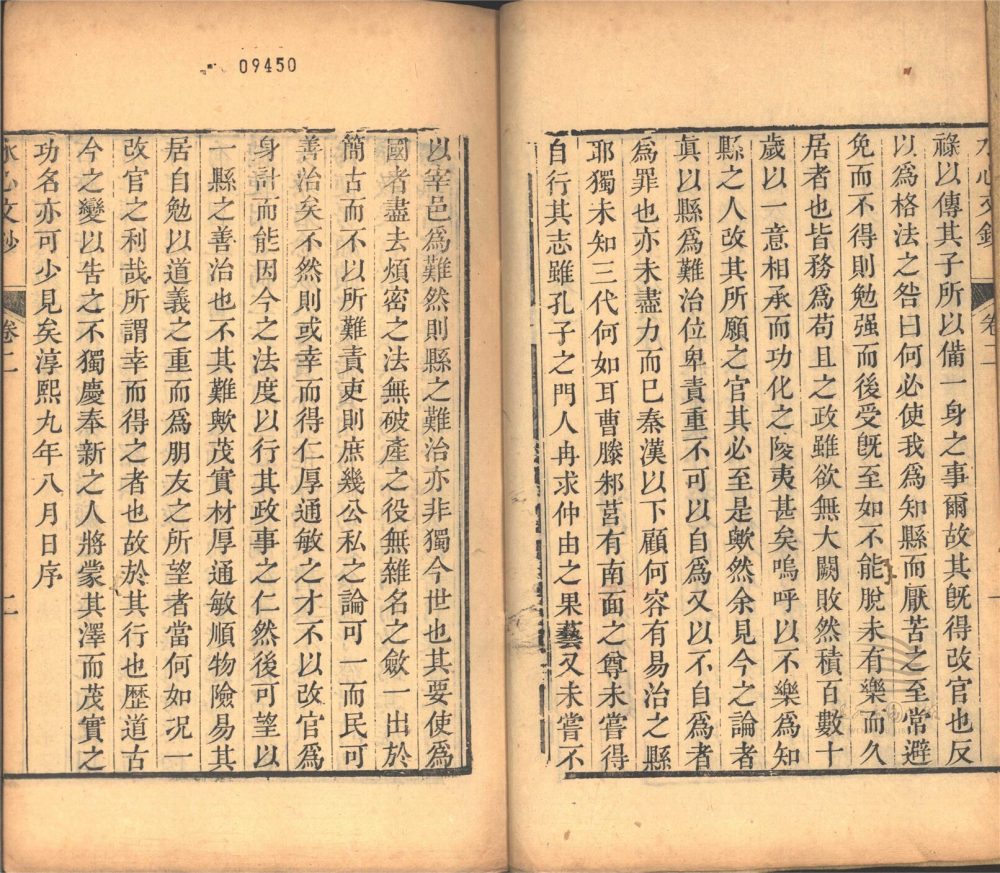 水心文鈔
卷二
一
祿以傳其子所以備一身之事爾故其旣得改官也反
以爲格法之咎曰何必使我爲知縣而厭苦之至常避
免而不得則勉强而後受旣至如不能脫未有樂而久
居者也皆務爲苟且之政雖欲無大闕敗然積百數十
歲以一意相承而功化之陵夷甚矣嗚呼以不樂爲知
縣之人改其所願之官其必至是歟然余見今之論者
眞以縣爲難治位卑責重不可以自爲又以不自爲者
爲罪也亦未盡力而已秦漢以下顧何容有易治之縣
耶獨未知三代何如耳曹滕邾莒有南面之尊未嘗得
自行其志雖孔子之門人冉求仲由之果藝又未嘗不
09450
以宰邑爲難然則縣之難治亦非獨今世也其要使爲
國者盡去煩密之法無破產之役無雜名之斂一出於
簡古而不以所難責吏則庶幾公私之論可一而民可
善治矣不然則或幸而得仁厚通敏之才不以改官爲
身計而能因今之法度以行其政事之仁然後可望以
一縣之善治也不其難歟茂實材厚通敏順物險易其
居自勉以道義之重而爲朋友之所望者當何如况一
改官之利哉所謂幸而得之者也故於其行也歷道古
今之變以告之不獨慶奉新之人將蒙其澤而茂實之
功名亦可少見矣淳熙九年八月日序
水心文鈔
卷二
二